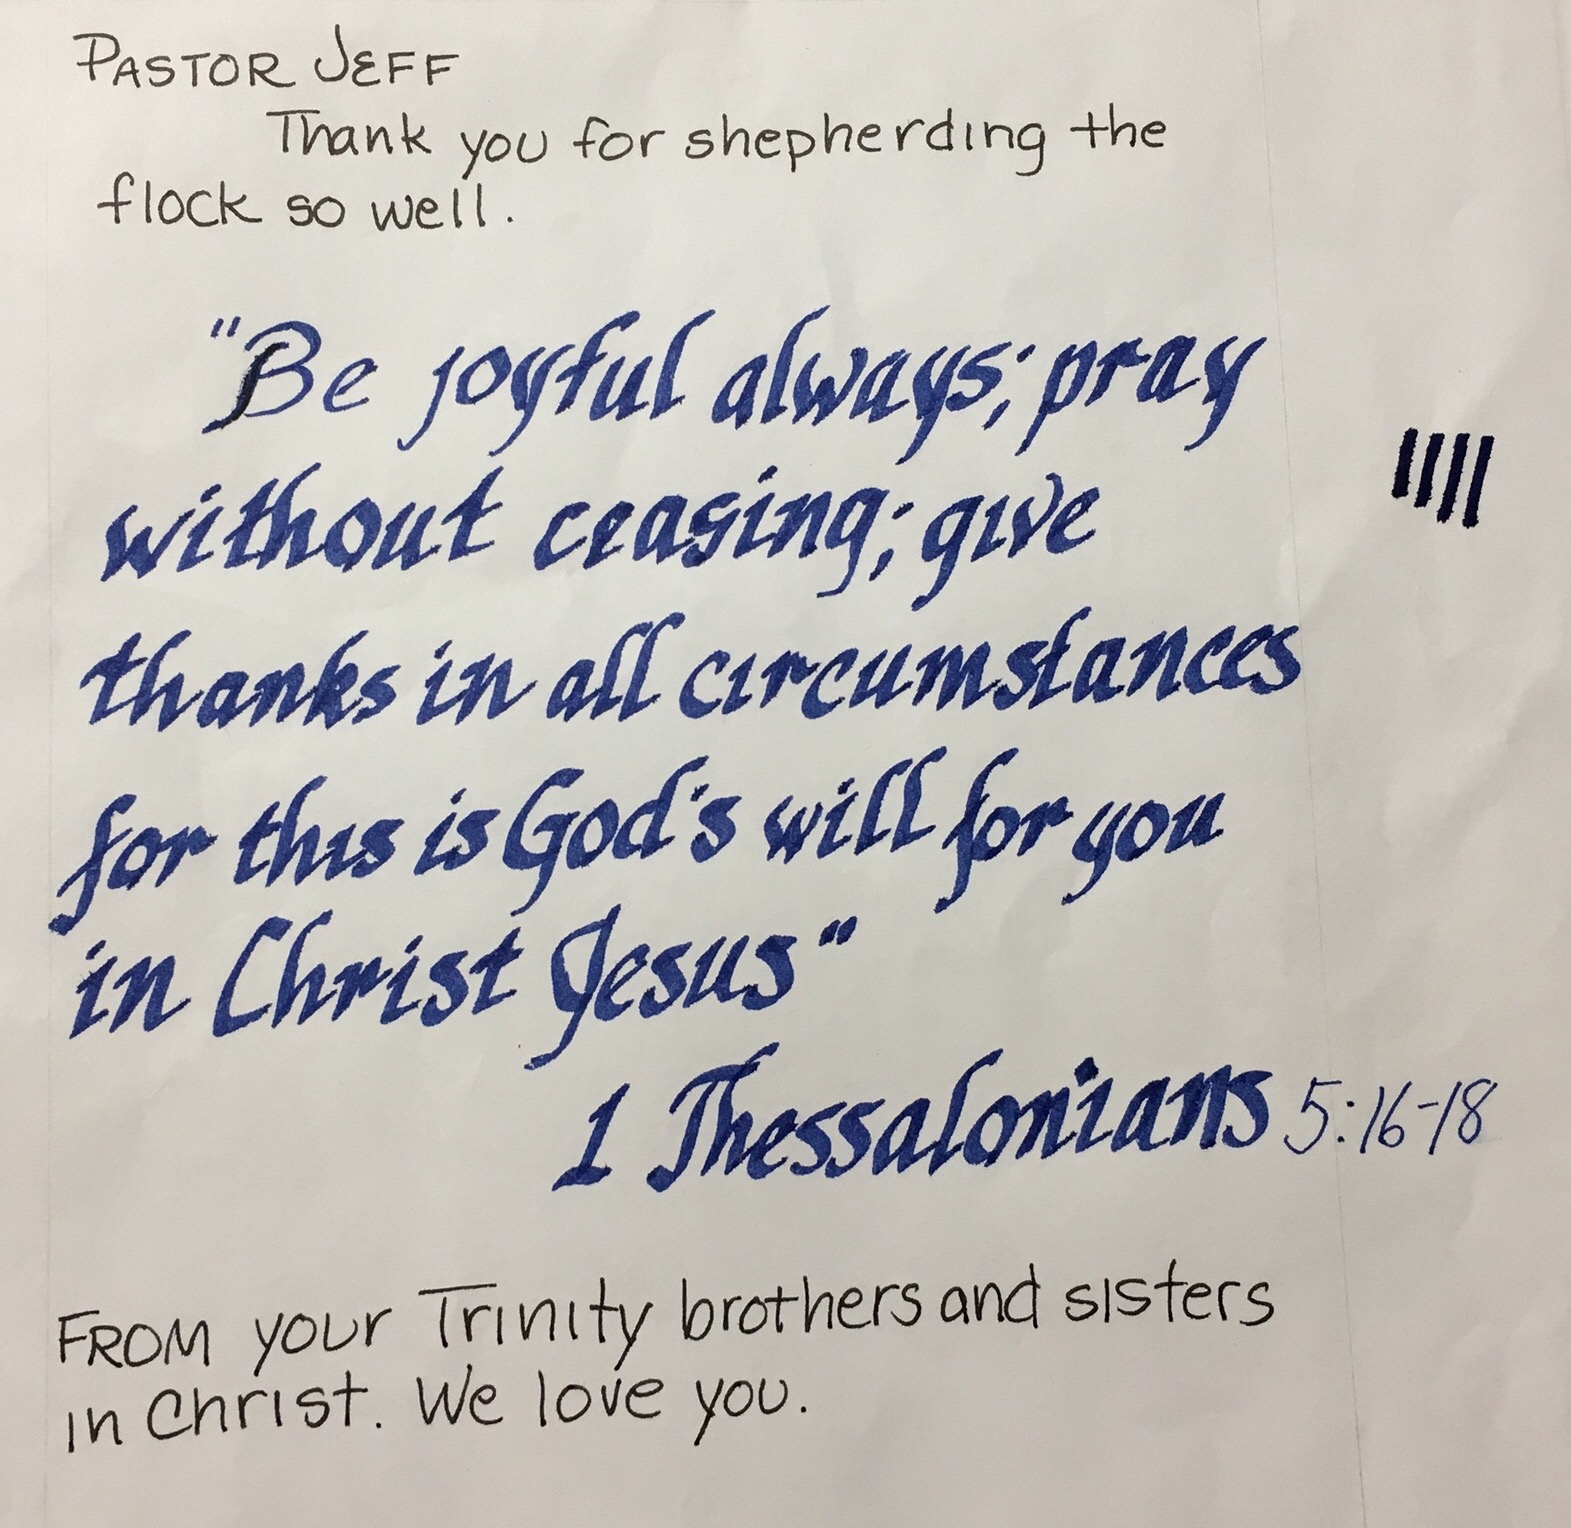 PASTOR JEFF
Thank you for shepherding the
flock so well.
"Be joyful always; pray
without ceasing; give
thanks in all circumstances
for this is God's will for you
in Christ Jesus"
1 Thessalonians 5:16-18
FROM your Trinity brothers and sisters
in Christ. We love you.